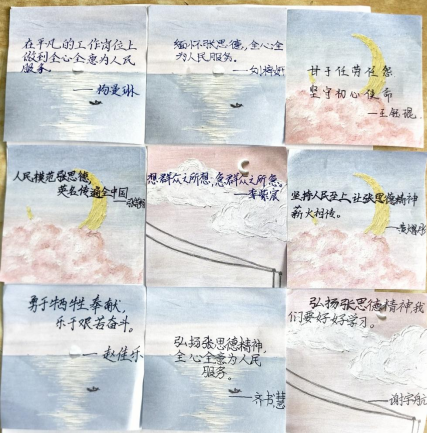 在平凡的工作岗位上
做到全心全意为人民
服务。
缅怀张思德,全心全
为人民服务。
甘于任劳任怨
坚守初心使命
人民模范张思德,
英名传遍全中国
想群众之所想,急群众之所急。
坚持人民至上,让张思德精神
薪火相传。
勇于牺牲奉献,
乐于艰苦奋斗。
——赵佳乐
弘扬张思德精神,
全心全意为人民
服务。
——齐书慧
弘扬张思德精神我
们要好好学习。
——谢宇航